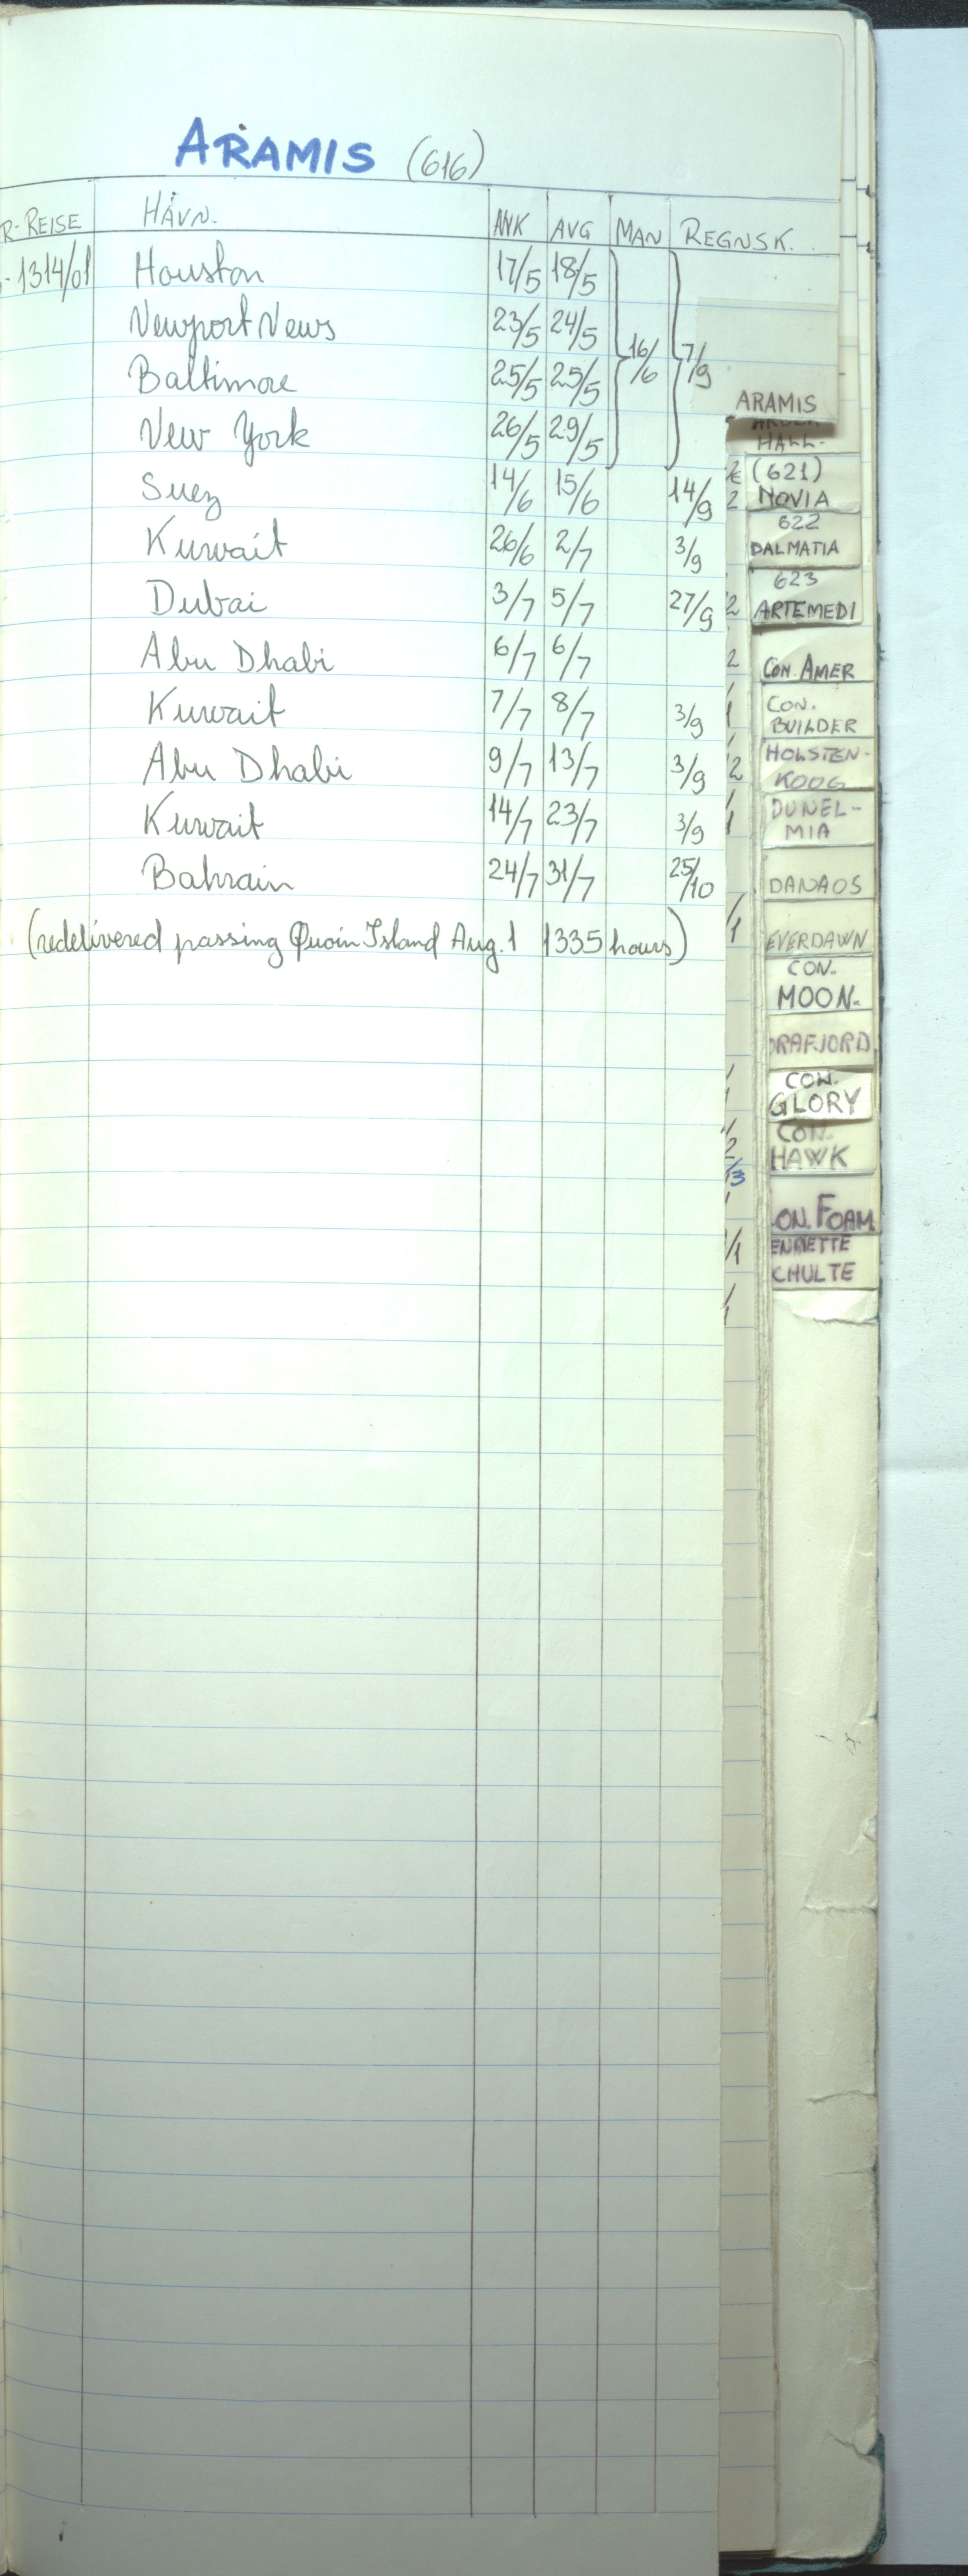 ARAMIS (616)
R-REISE HAVN. ANK AVG MAN REGNSK.
-1314/01 Houston 17/5 18/5
Newport News 23/5 24/5
Baltimore 25/5 25/5 16/6 7/9
New York 26/5 29/5
Suez 14/6 15/6 14/9
Kuwait 26/6 2/7 3/9
Dubai 3/7 5/7 27/9
Abu Dhabi 6/7 6/7
Kuwait 7/7 8/7 3/9
Abu Dhabi 9/7 13/7 3/9
Kuwait 14/7 23/7 3/9
Bahrain 24/7 31/7 25/10
(redelivered passing Quoin Island Aug. 1 1335 hours)
ARAMIS
HALL.
(621)
NOVIA
622
DALMATIA
623
ARTEMEDI
CON. AMER
CON.
BUILDER
HOLSTEN-
KOOG
DUNEL-
MIA
DANAOS
EVERDAWN
CON.
MOON.
DRAFJORD
CON.
GLORY
CON.
HAWK
ON. FOAM
ENRIETTE
CHULTE